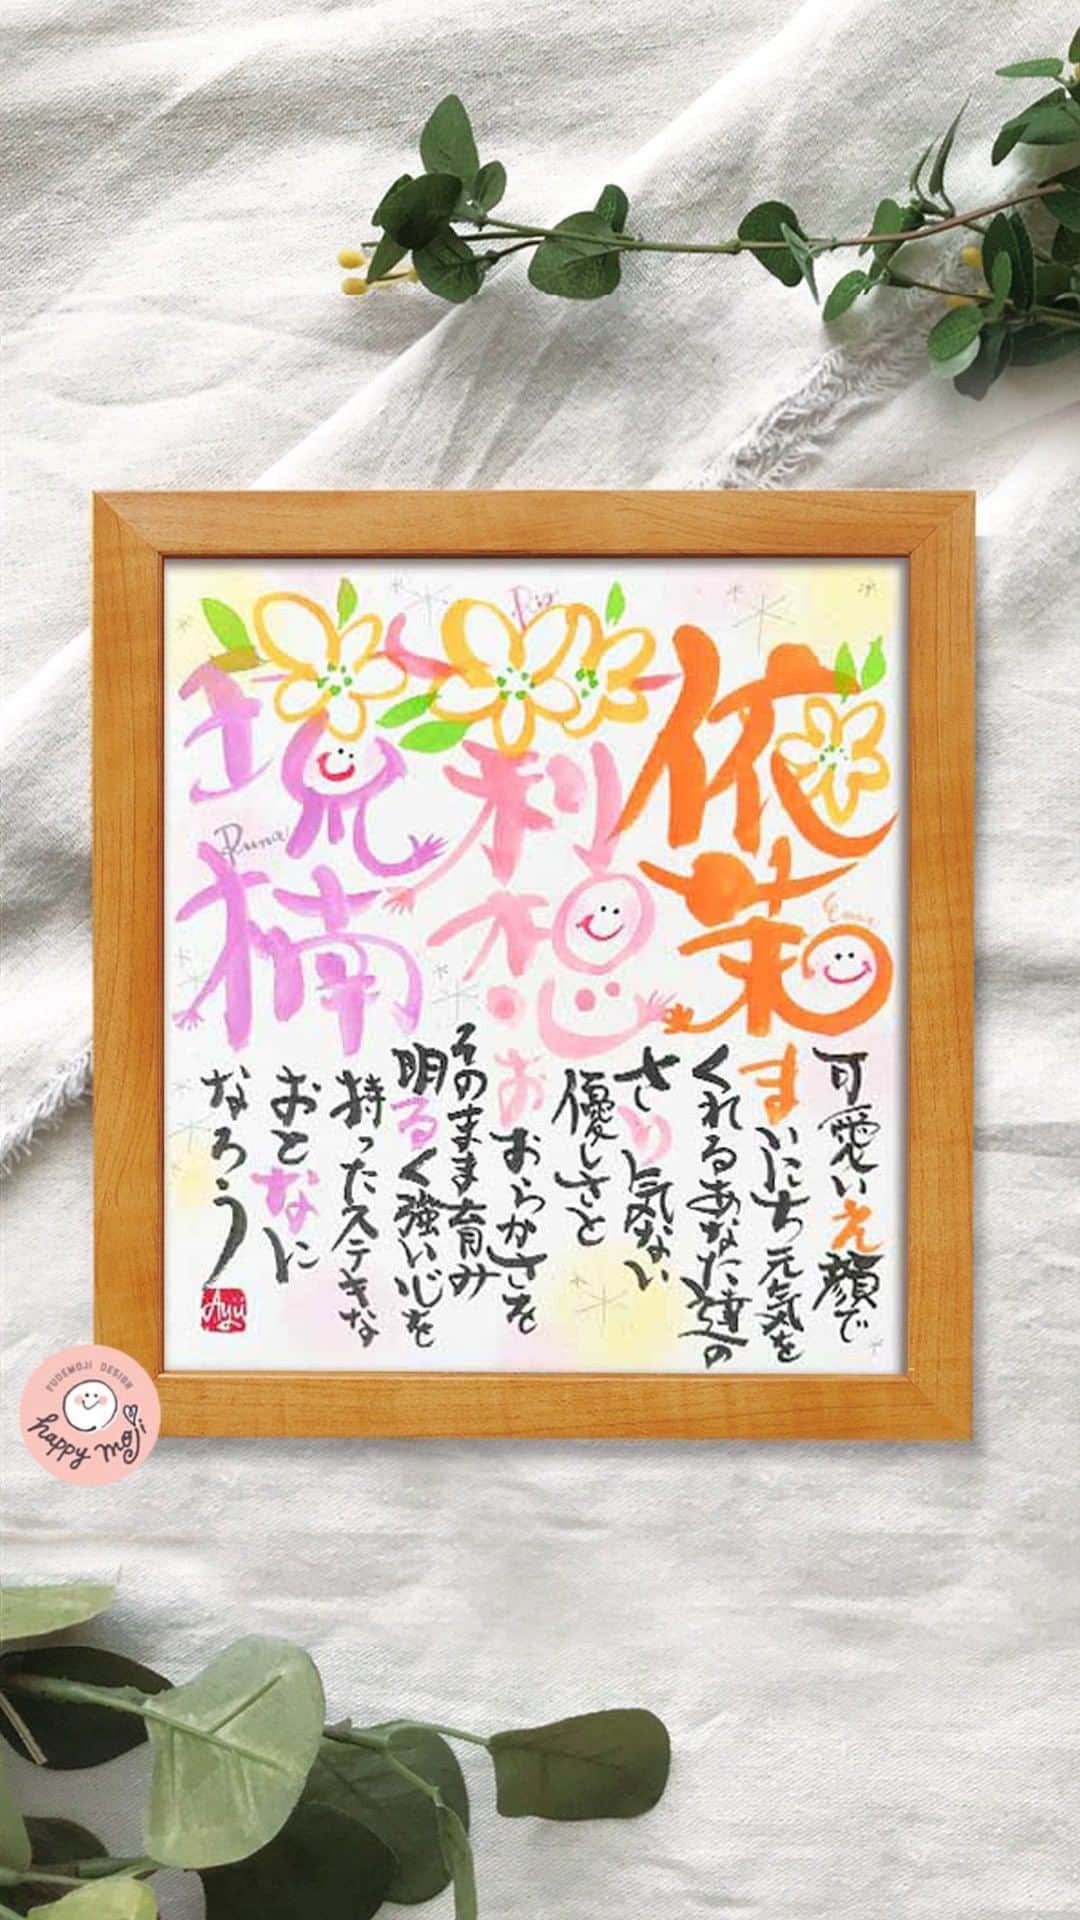 依茉
Ema
利想
琉楠
Runa
可愛いえ顔で
まいにち元気を
くれるあなた達の
さり気ない
優しさと
おおらかさを
そのまま育み
明るく強い心を
持ったステキな
おとなに
なろう
FUDEMOJI DESIGN
happy moji